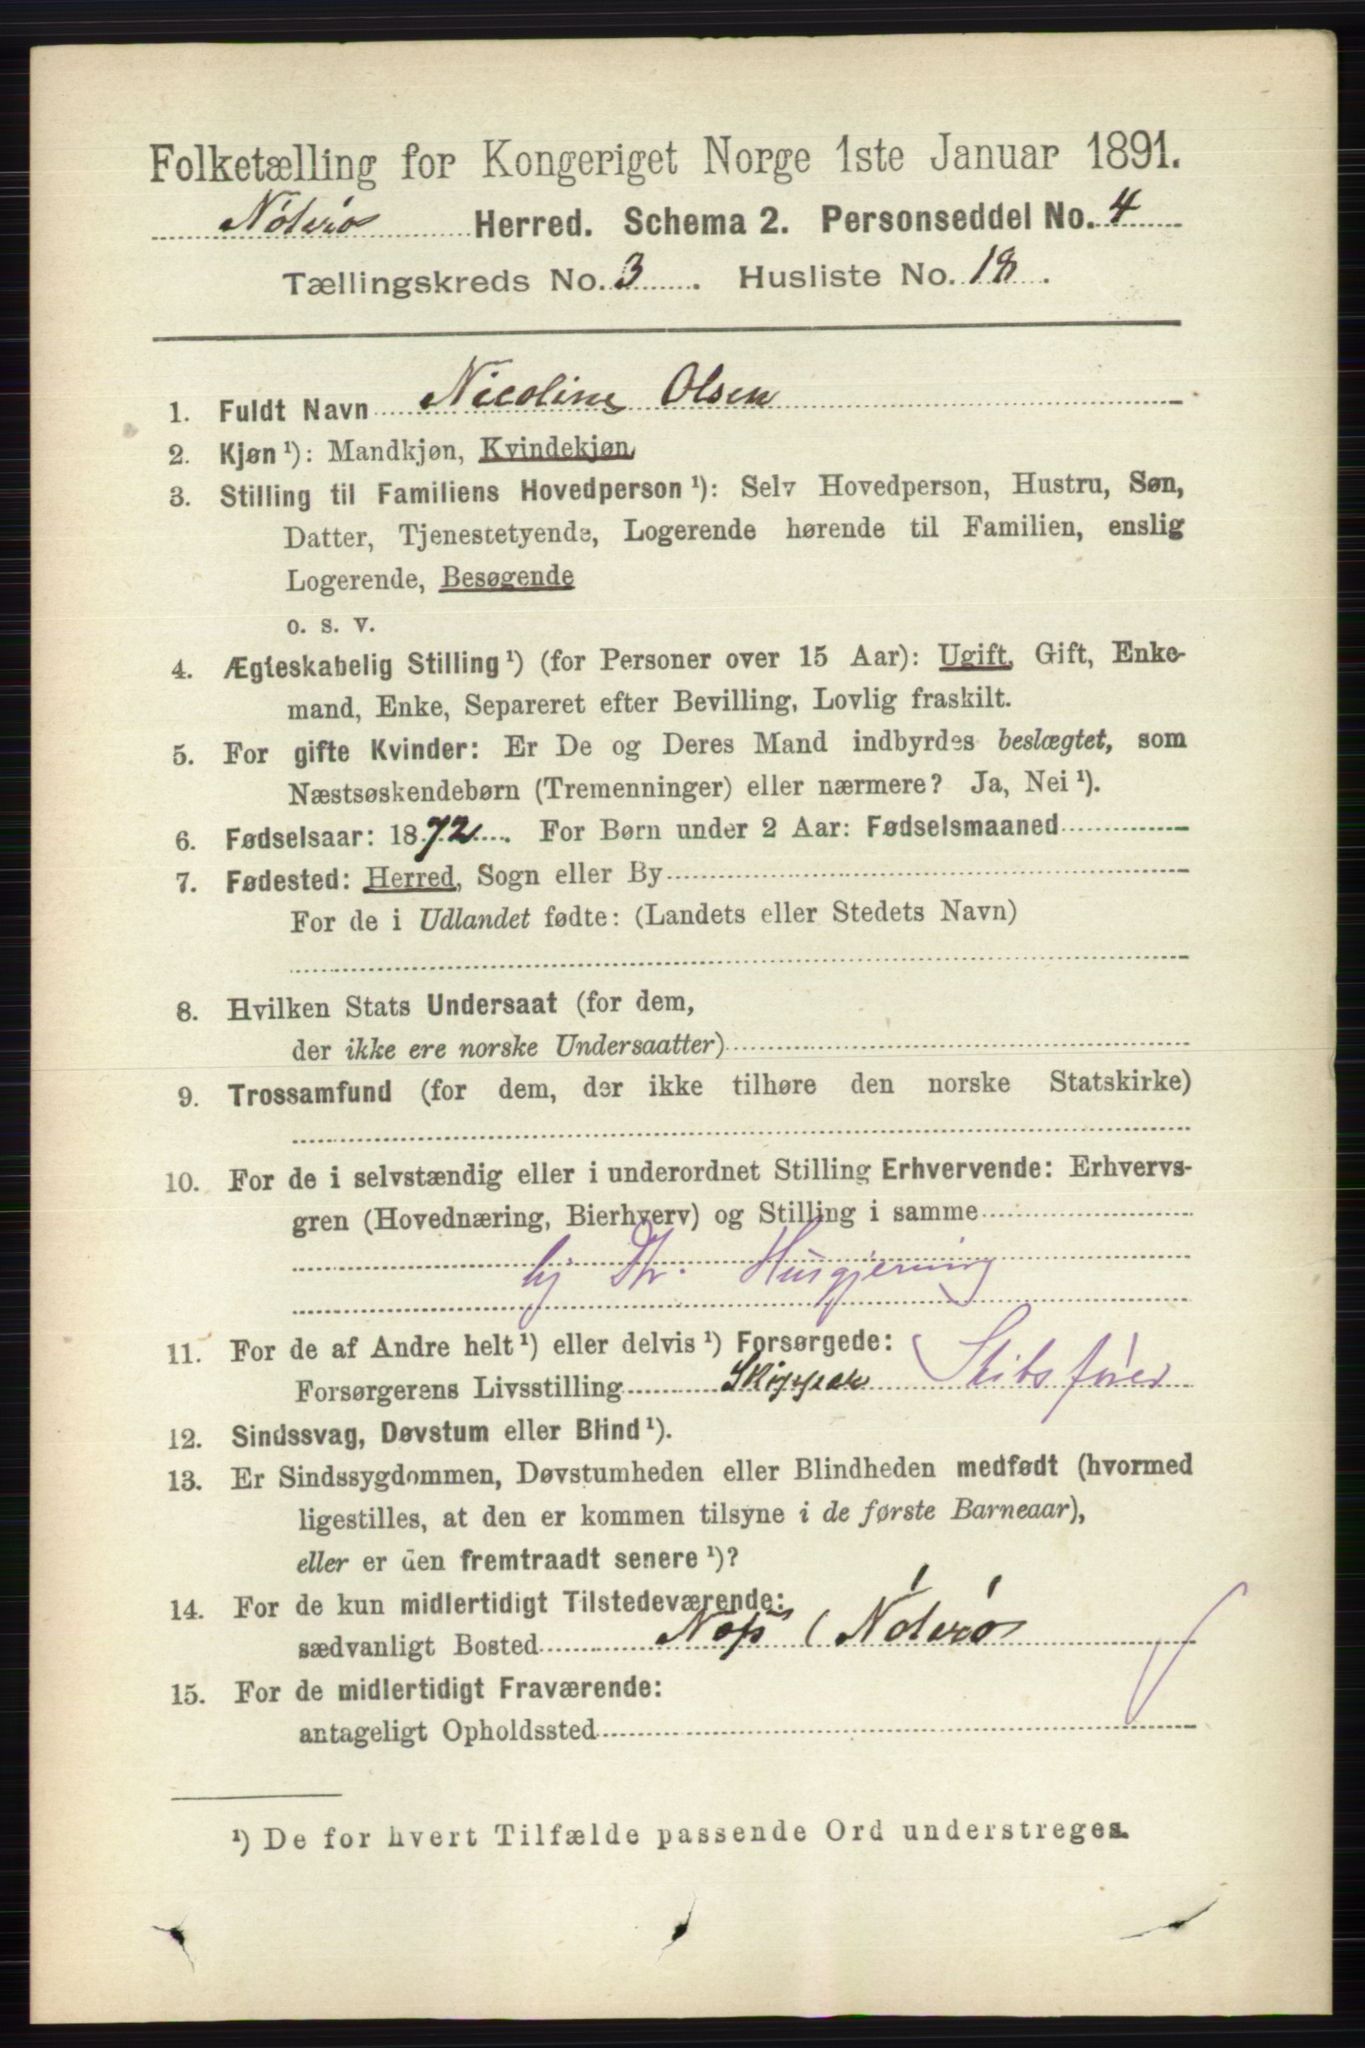 Folketælling for Kongeriget Norge 1ste Januar 1891.
Nøterø Herred. Schema 2. Personseddel No. 4
Tællingskreds No. 3. Husliste No. 18.
1. Fuldt Navn Nicoline Olsen
2. Kjøn ¹): Mandkjøn, Kvindekjøn,
3. Stilling til Familiens Hovedperson ¹): Selv Hovedperson, Hustru, Søn,
Datter, Tjenestetyende, Logerende hørende til Familien, enslig
Logerende, Besøgende
o. s. v.
4. Ægteskabelig Stilling ¹) (for Personer over 15 Aar): Ugift, Gift, Enke-
mand, Enke, Separeret efter Bevilling, Lovlig fraskilt.
5. For gifte Kvinder: Er De og Deres Mand indbyrdes beslægtet, som
Næstsøskendebørn (Tremenninger) eller nærmere? Ja, Nei ¹).
6. Fødselsaar: 1872. For Børn under 2 Aar: Fødselsmaaned
7. Fødested: Herred, Sogn eller By
For de i Udlandet fødte: (Landets eller Stedets Navn)
8. Hvilken Stats Undersaat (for dem,
der ikke ere norske Undersaatter)
9. Trossamfund (for dem, der ikke tilhøre den norske Statskirke)
10. For de i selvstændig eller i underordnet Stilling Erhvervende: Erhvervs-
gren (Hovednæring, Bierhverv) og Stilling i samme
Husgjerning
11. For de af Andre helt ¹) eller delvis ¹) Forsørgede:
Forsørgerens Livsstilling Skipper Skibsfører
12. Sindssvag, Døvstum eller Blind ¹).
13. Er Sindssygdommen, Døvstumheden eller Blindheden medfødt (hvormed
ligestilles, at den er kommen tilsyne i de første Barneaar),
eller er den fremtraadt senere ¹)?
14. For de kun midlertidigt Tilstedeværende:
sædvanligt Bosted Nøterø
15. For de midlertidigt Fraværende:
antageligt Opholdssted
¹) De for hvert Tilfælde passende Ord understreges.